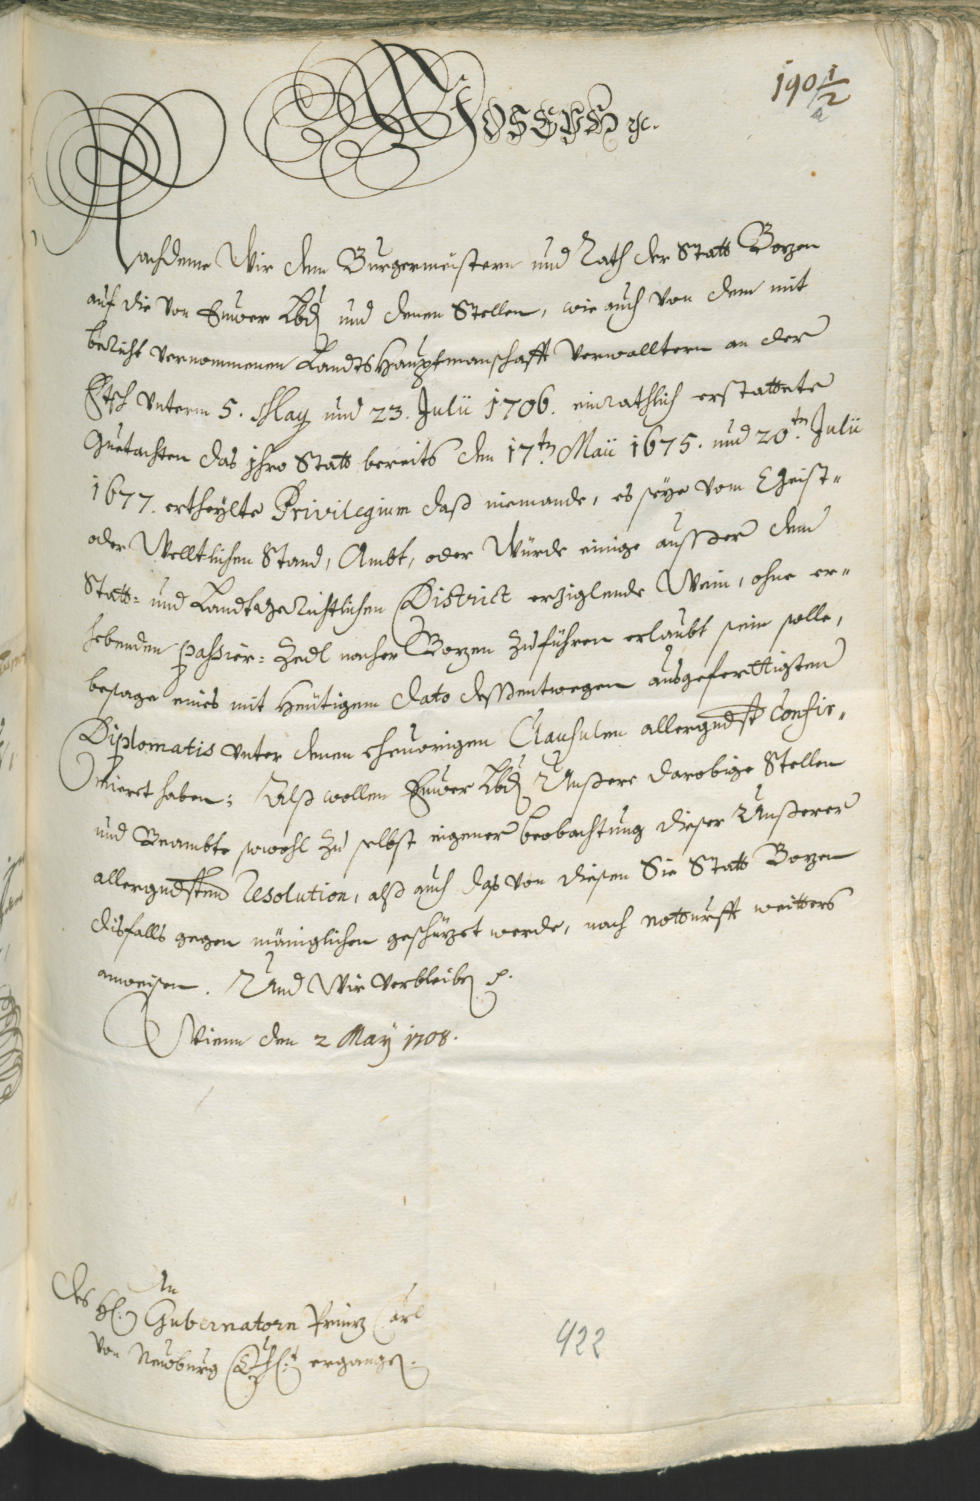 190 1/2
a
JOSEPH ꝛc.
Nachdeme Wir dem Burgermeistern und Rath der Statt Bozen
auf die von Euwer Lbd und denen Stellen, wie auch von dem mit
bericht vernommenen Landts Haubtmanschafft Verwalltern an der
Etsch unterm 5. May und 23. Julii 1706. einrathlich erstattete
Guetachten das ihro Statt bereits den 17tn Maii 1675. und 20tn Julii
1677. ertheylte Privilegium daß niemande, es seye vom Geist-
oder Welltlichen Stand, Ambt, oder Würde einige ausser dem
Statt- und Landtgerichtlichen District erziglende Wein, ohne er-
hebenden passier-Zedl nacher Bozen zuführen erlaubt sein solle,
besage eines mit heutigem dato dessentwegen ausgeferttigsten
Diplomatis unter denen vorigen Clausulen allergndst confir-
mieret haben; Alß wollen Euwer Lbd Unßere darobige Stellen
und Beambte sowohl zu selbst eigener beobachtung dieser Unßerer
allergndsten Resolution, alß auch das von diesen Sie Statt Bozen
disfalls gegen mäniglichen geschüzet werde, nach notturfft weitters
anweisen. Und Wir verbleiben ꝛc.
Wienn den 2 May 1708.
An
des H. Gubernatorn Prinz Carl
von Neuburg ergangen.
422